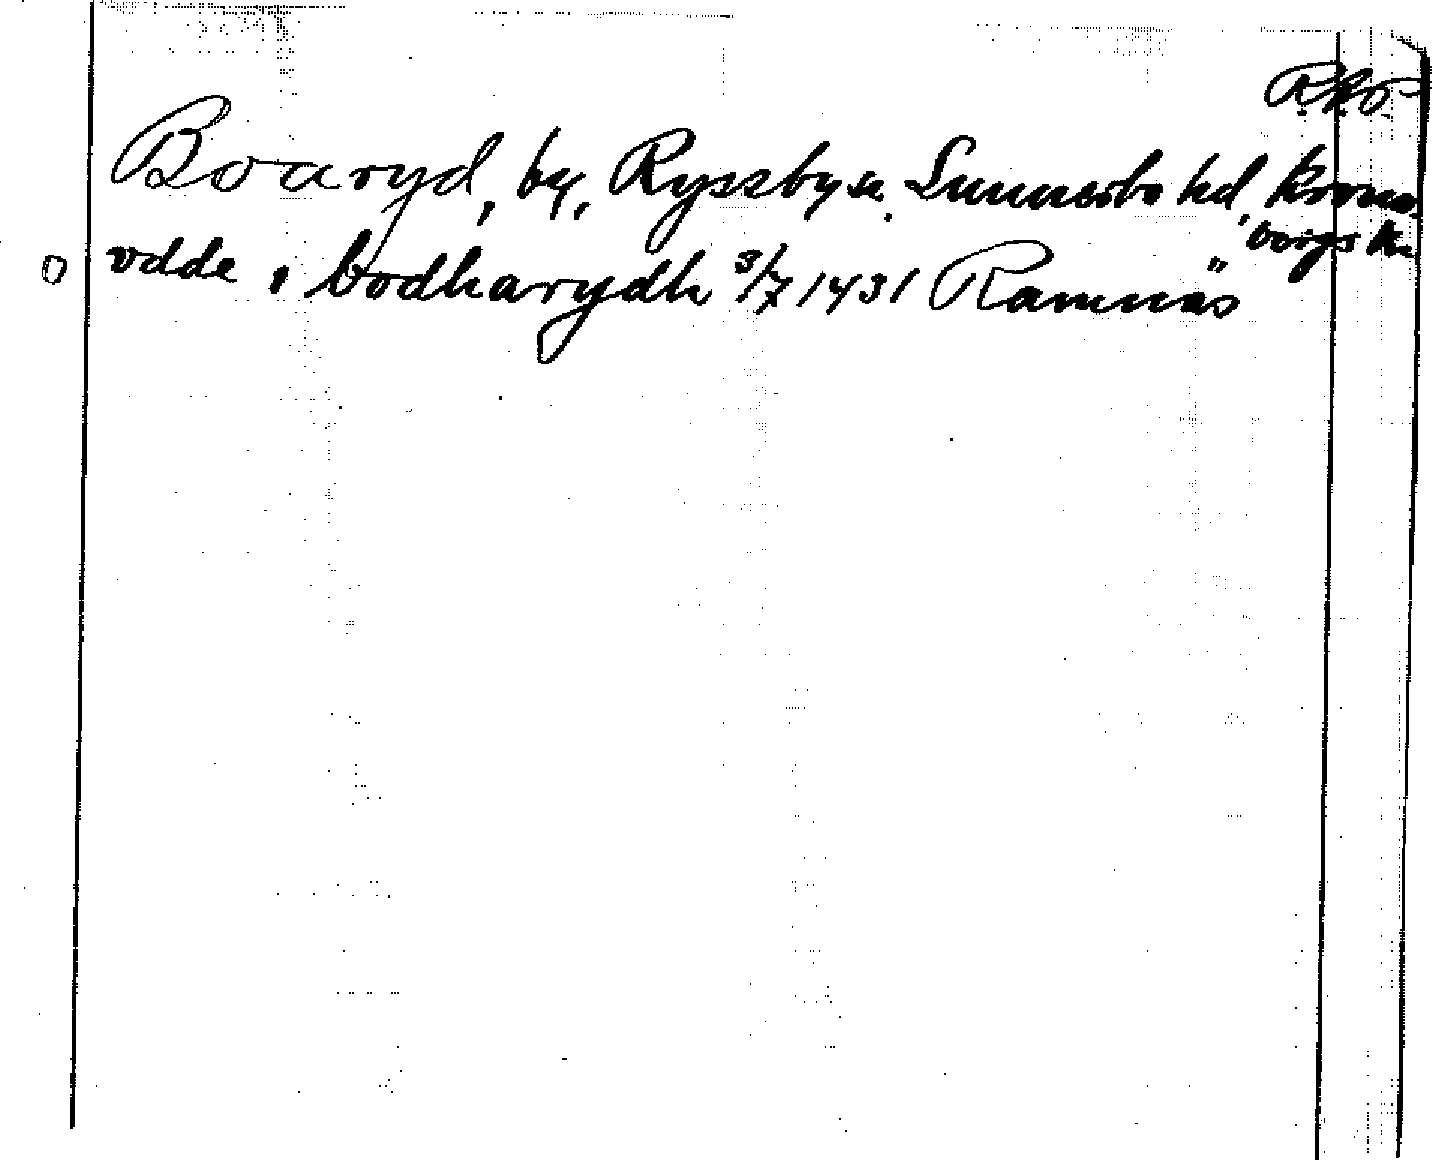 Boaryd, by, Ryssby sn. Sunnerbo hd, Krono
bergs l.
vdde i bodharydh 3/7 1431 Ramnäs